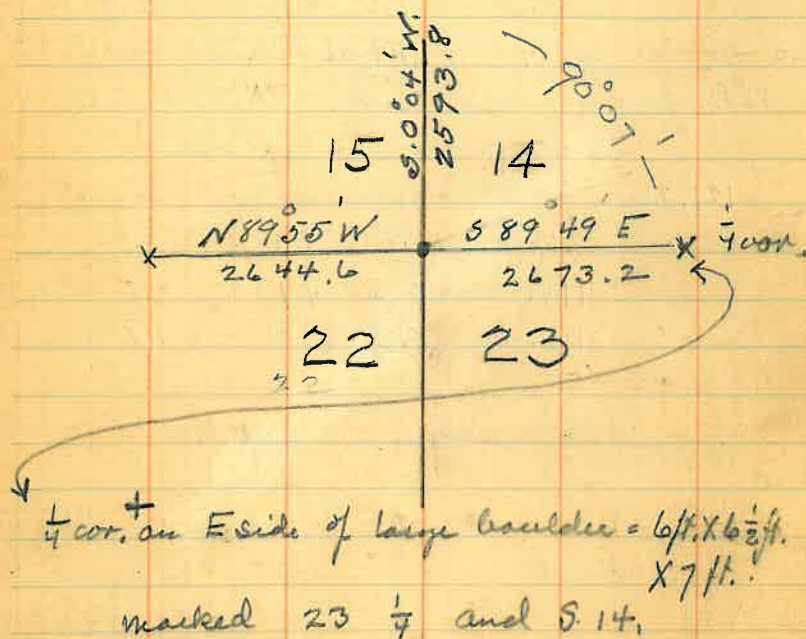 S. 0°04' W.
2593.8
90°07'
15
14
N 89°55' W
2644.6
S 89°49' E
2673.2
1/4 cor.
22
23
22
1/4 cor. + on E side of large boulder = 6 ft. X 6 1/2 ft.
X 7 ft.
marked 23 1/4 and S. 14.